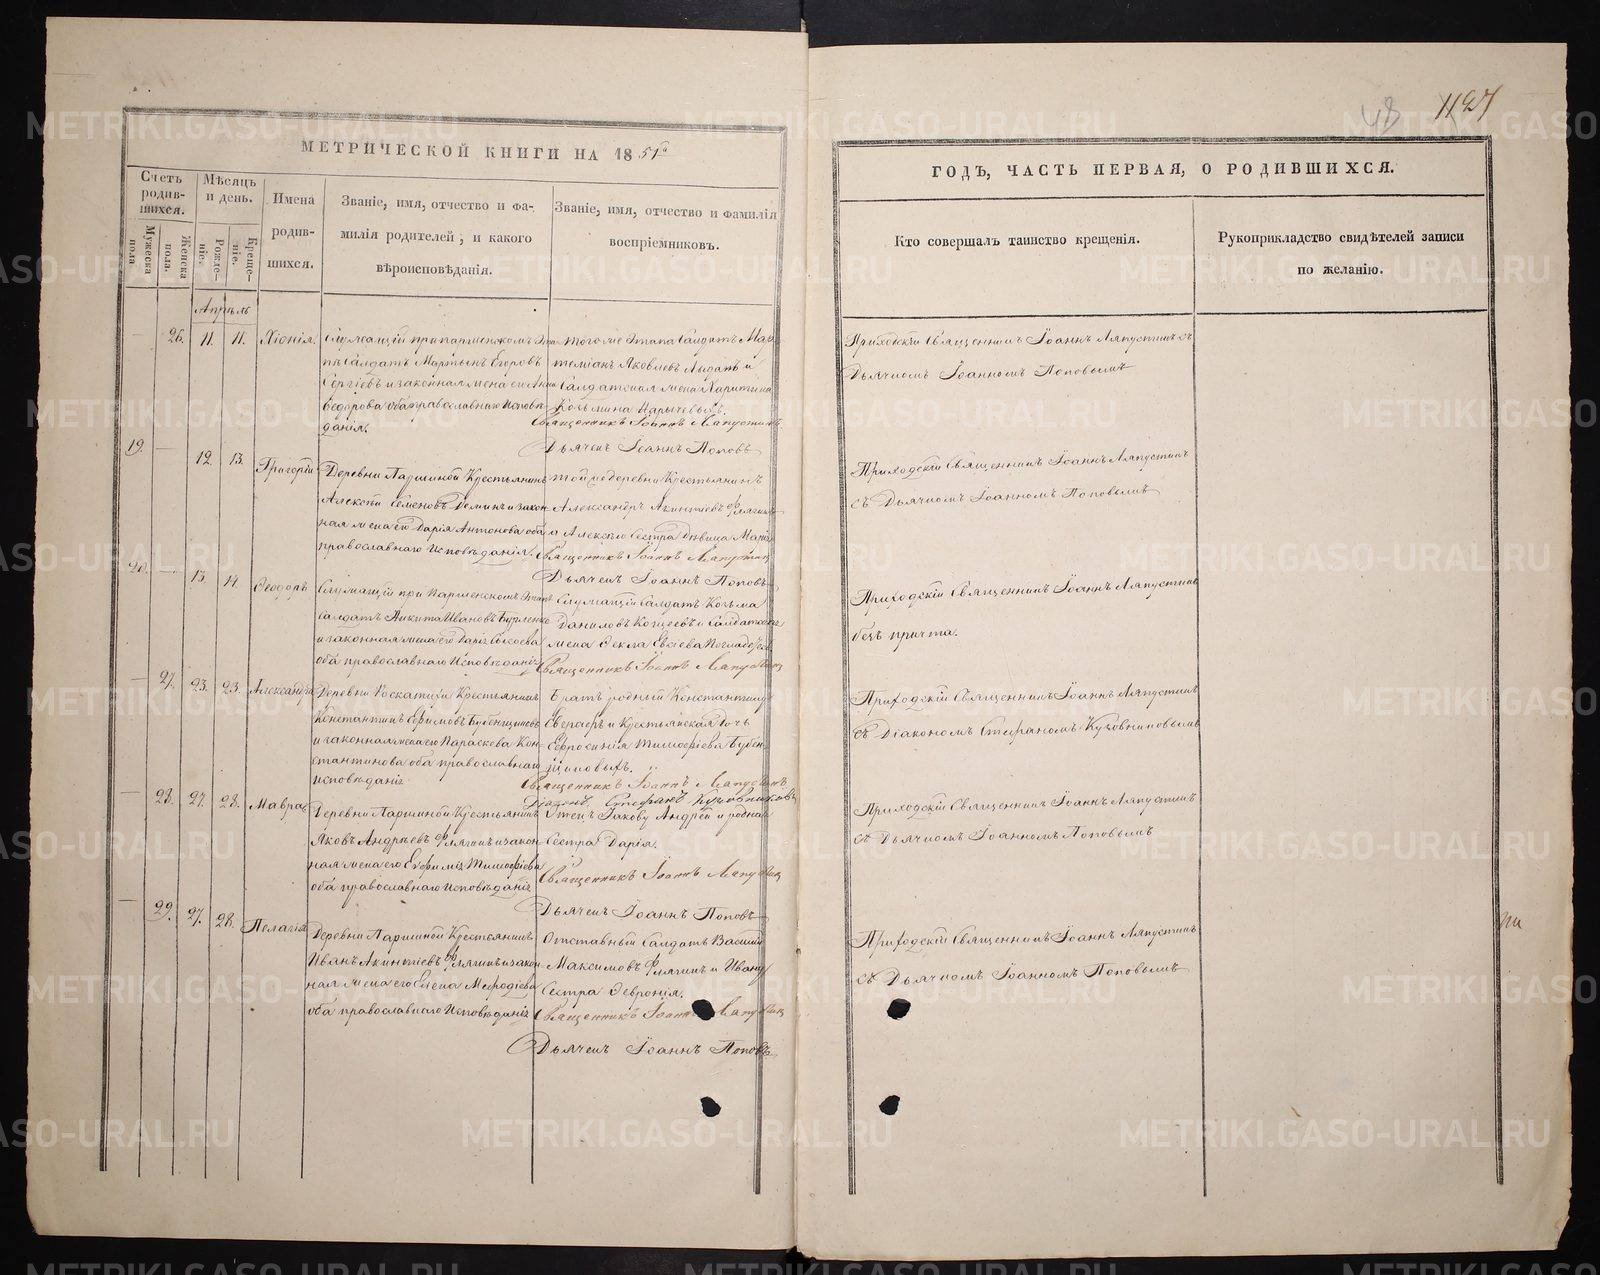 1127
48
МЕТРИЧЕСКОЙ КНИГИ НА 1851й
Счетъ родив-шихся.
Мужеска пола
Женска пола.
Мѣсяцъ и день.
Рожде-ніе.
Креще-ніе.
Имена родив-шихся.
Званіе, имя, отчество и фа-
милія родителей, и какого
вѣроисповѣданія.
Званіе, имя, отчество и фамилія
воспріемниковъ.
Апрѣль
26. 11. 11. Хіонія.
Служащій при паршенскомъ Эта
пѣ Салдатъ Мартынъ Егоровъ
Сергѣевъ и законная жена его Анна
Ѳедорова оба православнаго Исповѣ
данія.
тогоже Этапа Салдатъ
Яковлевъ и
Салдатская жена Харитина
Козьмина
Священникъ Іоаннъ Ляпустинъ
Дьячекъ Іоаннъ Поповъ
19. — 12. 13. Григорій
Деревни Паршиной Крестьянинъ
Алексѣй Семеновъ Деминъ и закон-
ная жена его Дарія Антонова оба
православнаго Исповѣданія.
той же деревни Крестьянинъ
Александръ Акинѳіевъ Флягинъ
а Алексѣю Сестра Дѣвица Марія
Священникъ Іоаннъ Ляпустинъ
Дьячекъ Іоаннъ Поповъ
20. — 13. 14 Ѳеодоръ
Служащій при Паршенскомъ Этапѣ
Салдатъ Никита Ивановъ
и законная жена его Дарія
оба православнаго Исповѣданія
Служащій Салдатъ Козьма
Даниловъ и Салдатская
жена Ѳекла
Священникъ Іоаннъ Ляпустинъ
— 27. 23. 23. Александра
Деревни Крестьянинъ
Константинъ Ефимовъ Бубенщиковъ
и законная жена его Параскева Кон-
стантинова оба православнаго
исповѣданія
Братъ родный Константину
и Крестьянская Дочь
Евфросинія Тимофіева Бубен-
щиковыхъ.
Священникъ Іоаннъ Ляпустинъ
Діаконъ Стефанъ Кузовниковъ
— 28. 27. 28. Мавра
Деревни Паршиной Крестьянинъ
Яковъ Андреевъ Флягинъ и закон-
ная жена его Евфимія Тимофіева
оба православнаго Исповѣданія
Отецъ Іакову Андрей и родная
Сестра Дарія.
Священникъ Іоаннъ Ляпустинъ
Дьячекъ Іоаннъ Поповъ
— 29. 27. 28. Пелагія
Деревни Паршиной Крестьянинъ
Иванъ Акинѳіевъ Флягинъ и закон-
ная жена его Елена Меѳодіева
оба православнаго Исповѣданія
Отставный Салдатъ Василій
Максимовъ Флягинъ и Ивану
Сестра Ѳевронія.
Священникъ Іоаннъ Ляпустинъ
Дьячекъ Іоаннъ Поповъ
ГОДЪ, ЧАСТЬ ПЕРВАЯ, О РОДИВШИХСЯ.
Кто совершалъ таинство крещенія.
Рукоприкладство свидѣтелей записи
по желанію.
Приходскій Священникъ Іоаннъ Ляпустинъ съ
Дьячкомъ Іоанномъ Поповымъ
Приходскій Священникъ Іоаннъ Ляпустинъ
съ Дьячкомъ Іоанномъ Поповымъ
Приходскій Священникъ Іоаннъ Ляпустинъ
безъ причта.
Приходскій Священникъ Іоаннъ Ляпустинъ
съ Діакономъ Стефаномъ Кузовниковымъ
Приходскій Священникъ Іоаннъ Ляпустинъ
съ Дьячкомъ Іоанномъ Поповымъ
Приходскій Священникъ Іоаннъ Ляпустинъ
съ Дьячкомъ Іоанномъ Поповымъ
METRIKI.GASO-URAL.RU